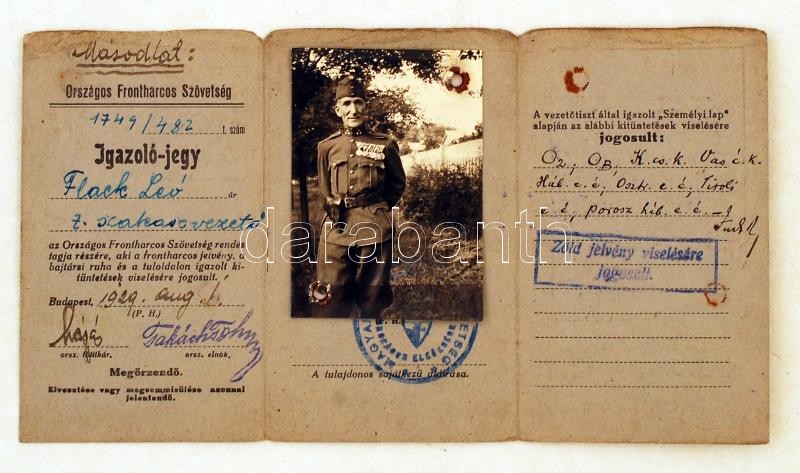 Másodlat:
Országos Frontharcos Szövetség
1749/482 t. szám
Igazoló-jegy
Flack Leó úr
t. szakaszvezető
az Országos Frontharcos Szövetség rendes
tagja részére, aki a frontharcos jelvény, a
bajtársi ruha és a túloldalon igazolt ki-
tüntetések viselésére jogosult.
Budapest, 1929. aug.
(P. H.)
orsz. főtitkár.
orsz. elnök.
Megőrzendő.
Elvesztése vagy megsemmisülése azonnal
jelentendő.
A tulajdonos sajátkezű aláírása.
A vezetőtiszt által igazolt „Személyi lap"
alapján az alábbi kitüntetések viselésére
jogosult:
O2, OB, K. cs. k. Vas é. k.
Háb. e. é, Osztr. e. é, Tiroli
e. é, porosz háb. e. é.
Zöld jelvény viselésére
jogosult.
darabanth